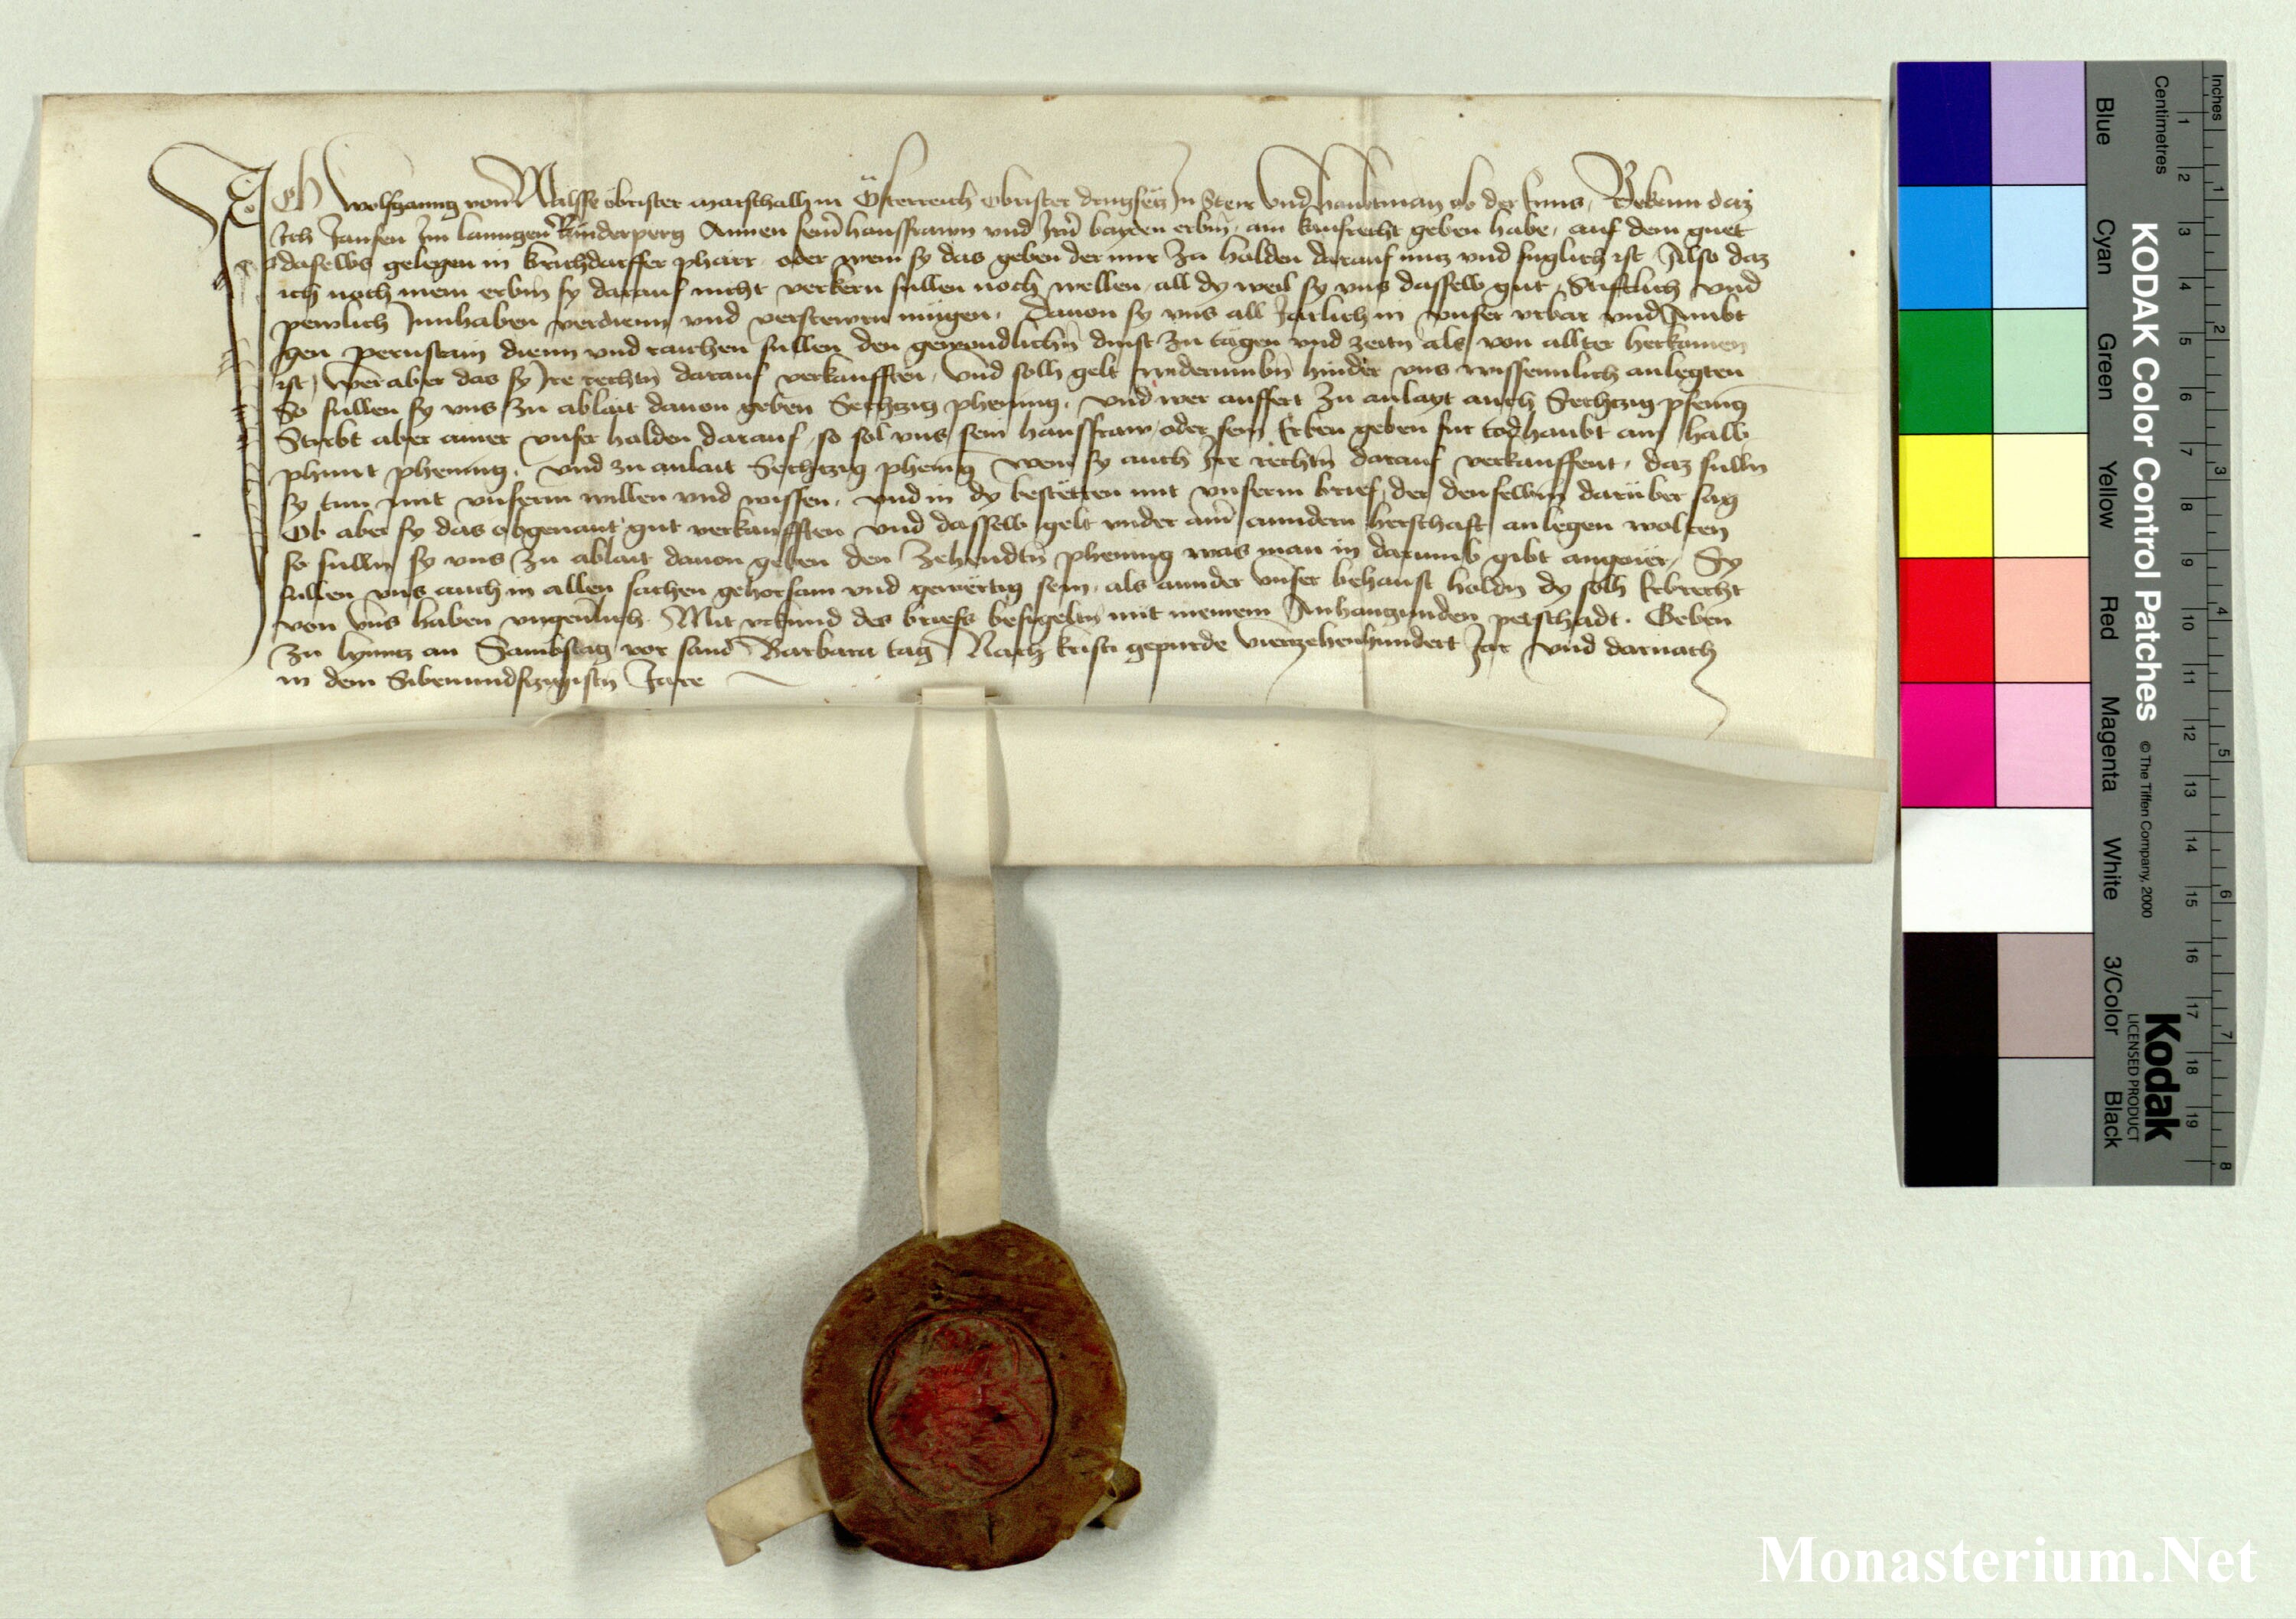 Ich Wolfganng von Walsse obrister marschalh in Österreich obrister drugsëtz In Steir Und haubtman ob der Enns, Bekenn daz
Ich Jansen Im lanngen Rinderperg Annen seiñ hausfrawn und Irñ bayden erbñ, ain kaufrecht geben habe, auf dem guet
daselbs gelegen in kirichdorffer pharr, oder wem sy das geben der mir Zu holden darauf nutz und fuglich ist, Also daz
ich noch mein erbñ sy darauf nicht verkern sullen noch wellen, all dy weil sy uns dasselb gut, Stiftlich und
pewlich Innhaben verdienn und verstewrn mügen. Dauon sy uns all Järlich in unser urbar und Ambt
gen pernstain dienn und raichen sullen den gewondlichñ dinst zu tägen und zeitñ als von allter herkomen
ist, Wer aber das sy Ire rechtñ darauf verkaufften, Und solh gelt widerumbñ hinder uns wissennlich anlegten
So sullen sy uns zu ablait dauon geben Sechtzig phening, und wer auffert Zu anlayt auch Sechtzig phenig
Stirbt aber ainer unser holden darauf, so sol uns sein hausfraw, oder sein Erben geben fur todhaubt ain halb
phunt phening, und zu anlait Sechtzig phenig Wem sy auch Ire rechtñ darauf verkauffent, daz sullñ
sy tun mit unserm willen und wissen, und in dy bestëtten mit unserm brief, der denselbñ darüber sag
Ob aber sy das obgenant gut verkaufften und dasselb gelt under aiñ anndern herschaft anlegen wolten
so sullñ sy uns zu ablait dauon geben den Zehendtñ phening was man in darumb gibt angeuer, Sy
sullen uns auch in allen sachen gehorsam und gewërtig sein, als annder unser behaust holdñ dy solh Erbrecht
von uns haben ungeuerlich. Mit urkund des briefs besigeltñ mit meinem Anhangunden petschadt. Geben
Zu lynntz an Sambstag vor sand Barbara tag Nach kristi gepurde viertzehenhundert Jar und darnach
in dem Sibenundfunzigistñ Jare
KODAK Color Control Patches
© The Tiffen Company, 2000
Kodak
LICENSED PRODUCT
Inches 1 2 3 4 5 6 7 8
Centimetres 1 2 3 4 5 6 7 8 9 10 11 12 13 14 15 16 17 18 19
Blue Cyan Green Yellow Red Magenta White 3/Color Black
Monasterium.Net